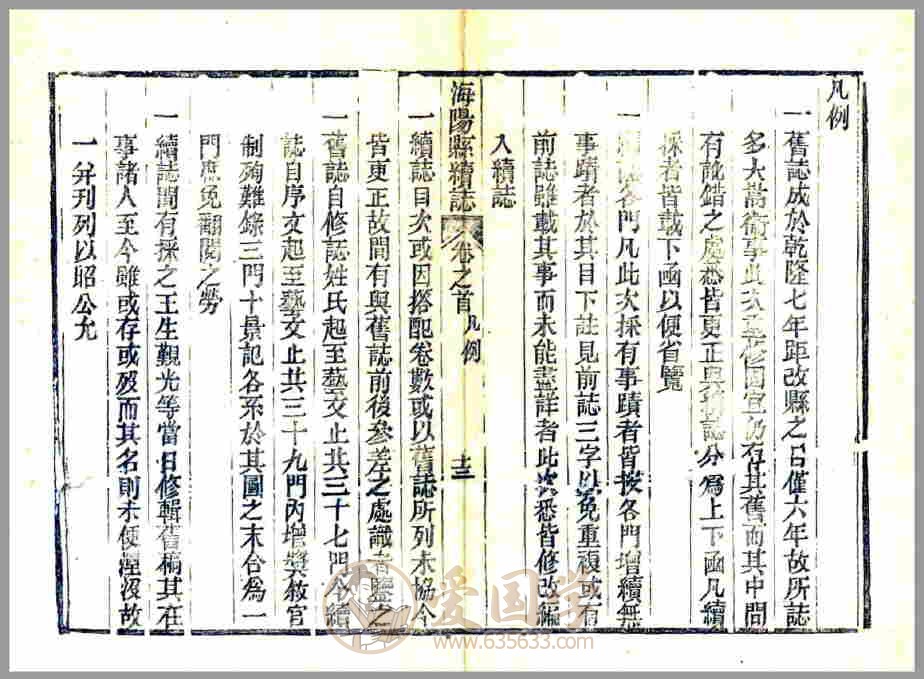 凡例
一舊誌成於乾隆七年距改縣之日僅六年故所誌
多大嵩衛事此次續修固宜仍存其舊而其中間
有訛錯之處悉皆更正與新誌分為上下函凡續
採者皆載下函以便省覽
一 各門凡此次採有事蹟者皆按各門增續無
事蹟者於其目下註見前誌三字以免重複或有
前誌雖載其事而未能盡詳者此次悉皆修改編
入續誌
海陽縣續誌 卷之首 凡例 十三
一續誌目次或因搭配卷數或以舊誌所列未協今
皆更正故間有與舊誌前後參差之處識者鑒之
一舊誌自修誌姓氏起至藝文止共三十七門今續
誌自序文起至藝文止共三十九門內增獎敘官
制殉難錄三門十景記各系於其圖之末合為一
門庶免翻閱之勞
一續誌間有採之王生觀光等當日修輯舊稿其在
事諸人至今雖或存或歿而其名則未便湮沒故
一并刊列以昭公允
爱国学
www.635633.com